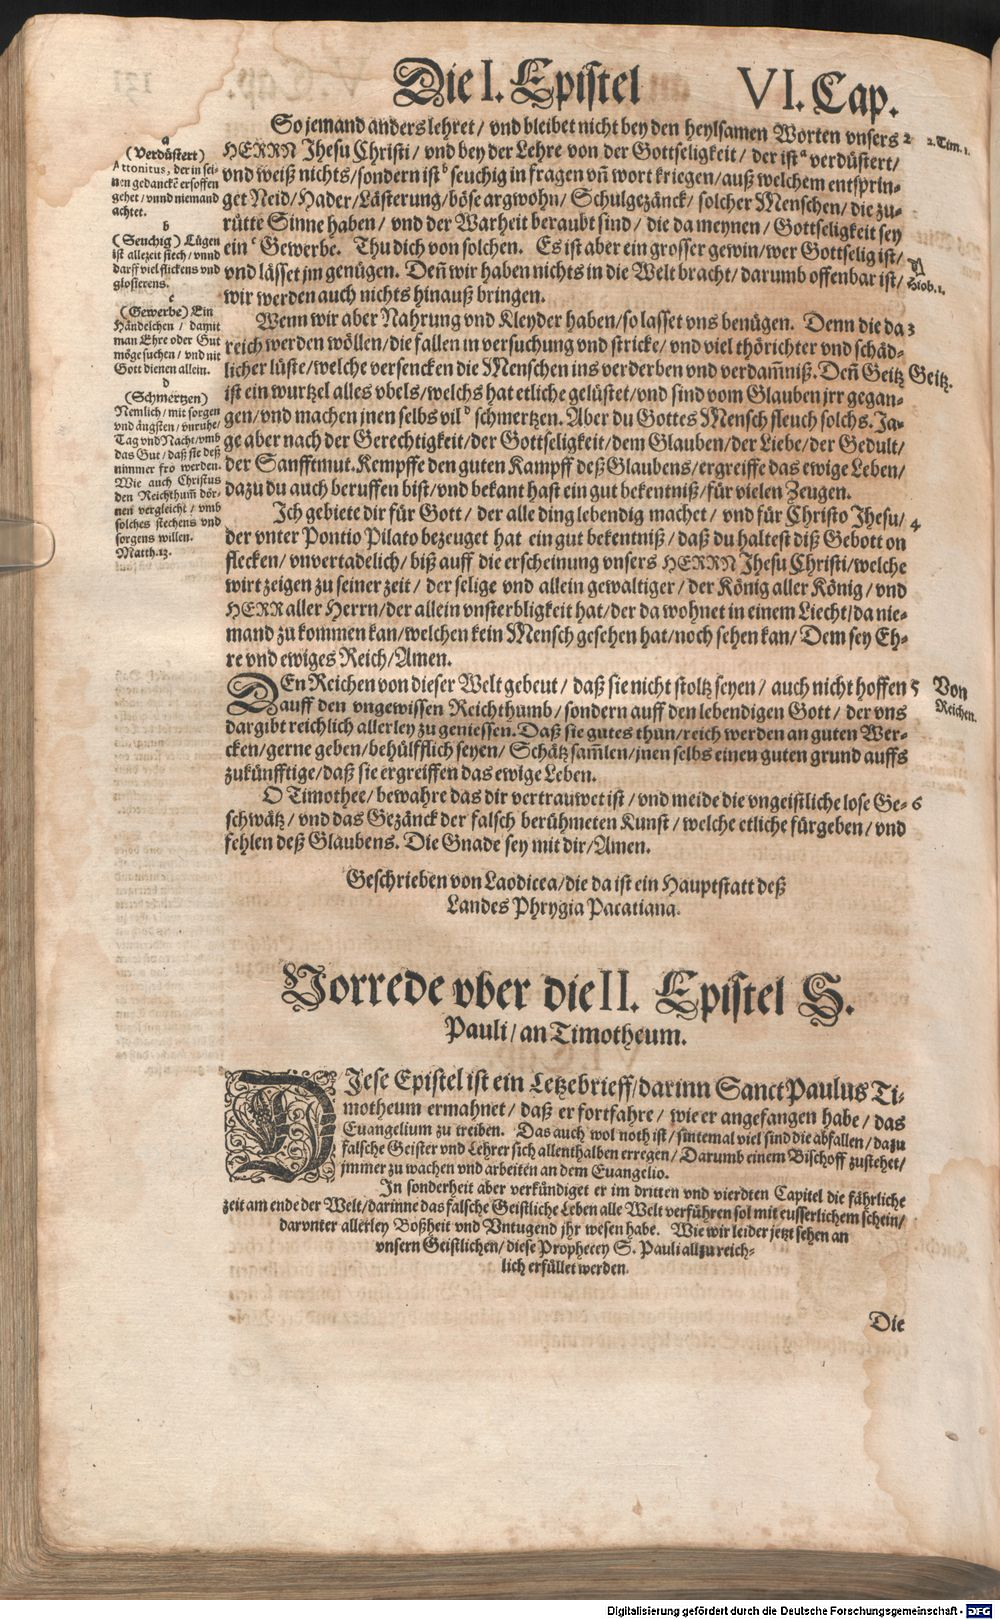 Die I. Epistel VI. Cap.
So jemand anders lehret / vnd bleibet nicht bey den heylsamen Worten vnsers 2
HERRN Jhesu Christi / vnd bey der Lehre von der Gottseligkeit / der ist a verdüstert /
vnd weiß nichts / sondern ist b seuchig in fragen vñ wort kriegen / auß welchem entsprin-
get Neid / Hader / Lästerung / böse argwohn / Schulgezänck / solcher Menschen / die zu-
rütte Sinne haben / vnd der Warheit beraubt sind / die da meynen / Gottseligkeit sey
ein c Gewerbe. Thu dich von solchen. Es ist aber ein grosser gewin / wer Gottselig ist /
vnd lässet jm genügen. Deñ wir haben nichts in die Welt bracht / darumb offenbar ist /
wir werden auch nichts hinauß bringen.
Wenn wir aber Nahrung vnd Kleyder haben / so lasset vns benügen. Denn die da 3
reich werden wöllen / die fallen in versuchung vnd stricke / vnd viel thörichter vnd schäd-
licher lüste / welche versencken die Menschen ins verderben vnd verdam̃niß. Deñ Geitz
ist ein wurtzel alles vbels / welchs hat etliche gelüstet / vnd sind vom Glauben jrr gegan-
gen / vnd machen jnen selbs vil d schmertzen. Aber du Gottes Mensch fleuch solchs. Ja-
ge aber nach der Gerechtigkeit / der Gottseligkeit / dem Glauben / der Liebe / der Gedult /
der Sanfftmut. Kempffe den guten Kampff deß Glaubens / ergreiffe das ewige Leben /
dazu du auch beruffen bist / vnd bekant hast ein gut bekentniß / für vielen Zeugen.
Ich gebiete dir für Gott / der alle ding lebendig machet / vnd für Christo Jhesu / 4
der vnter Pontio Pilato bezeuget hat ein gut bekentniß / daß du haltest diß Gebott on
flecken / vnvertadelich / biß auff die erscheinung vnsers HERRN Jhesu Christi / welche
wirt zeigen zu seiner zeit / der selige vnd allein gewaltiger / der König aller König / vnd
HERR aller Herrn / der allein vnsterbligkeit hat / der da wohnet in einem Liecht / da nie-
mand zu kommen kan / welchen kein Mensch gesehen hat / noch sehen kan / Dem sey Eh-
re vnd ewiges Reich / Amen.
DEn Reichen von dieser Welt gebeut / daß sie nicht stoltz seyen / auch nicht hoffen 5
auff den vngewissen Reichthumb / sondern auff den lebendigen Gott / der vns
dargibt reichlich allerley zu geniessen. Daß sie gutes thun / reich werden an guten Wer-
cken / gerne geben / behülfflich seyen / Schätz sam̃len / jnen selbs einen guten grund auffs
zukünfftige / daß sie ergreiffen das ewige Leben.
O Timothee / bewahre das dir vertrauwet ist / vnd meide die vngeistliche lose Ge- 6
schwätz / vnd das Gezänck der falsch berühmeten Kunst / welche etliche fürgeben / vnd
fehlen deß Glaubens. Die Gnade sey mit dir / Amen.
Geschrieben von Laodicea / die da ist ein Hauptstatt deß
Landes Phrygia Pacatiana.
a
(Verdüstert)
Attonitus, der in sei-
nen gedanckẽ ersoffen
gehet / vnnd niemand
achtet.
b
(Seuchig) Lügen
ist allezeit siech / vnnd
darff viel flickens vnd
glosierens.
c
(Gewerbe) Ein
Händelchen / damit
man Ehre oder Gut
möge suchen / vnd nit
Gott dienen allein.
d
(Schmertzen)
Nemlich / mit sorgen
vnd ängsten / vnruhe /
Tag vnd Nacht / vmb
das Gut / daß sie deß
nimmer fro werden.
Wie auch Christus
den Reichthum̃ dör-
nen vergleicht / vmb
solches stechens vnd
sorgens willen.
Matth. 13.
2. Tim. 1.
A
Hiob. 1.
Geitz.
Von
Reichen.
Vorrede vber die II. Epistel S.
Pauli / an Timotheum.
DIese Epistel ist ein Letzebrieff / darinn Sanct Paulus Ti-
motheum ermahnet / daß er fortfahre / wie er angefangen habe / das
Euangelium zu treiben. Das auch wol noth ist / sintemal viel sind die abfallen / dazu
falsche Geister vnd Lehrer sich allenthalben erregen / Darumb einem Bischoff zustehet /
jmmer zu wachen vnd arbeiten an dem Euangelio.
In sonderheit aber verkündiget er im dritten vnd vierdten Capitel die fährliche
zeit am ende der Welt / darinne das falsche Geistliche Leben alle Welt verführen sol mit eusserlichem schein /
darvnter allerley Boßheit vnd Vntugend jhr wesen habe. Wie wir leider jetzt sehen an
vnsern Geistlichen / diese Prophecey S. Pauli allzu reich-
lich erfüllet werden.
Die
Digitalisierung gefördert durch die Deutsche Forschungsgemeinschaft - DFG